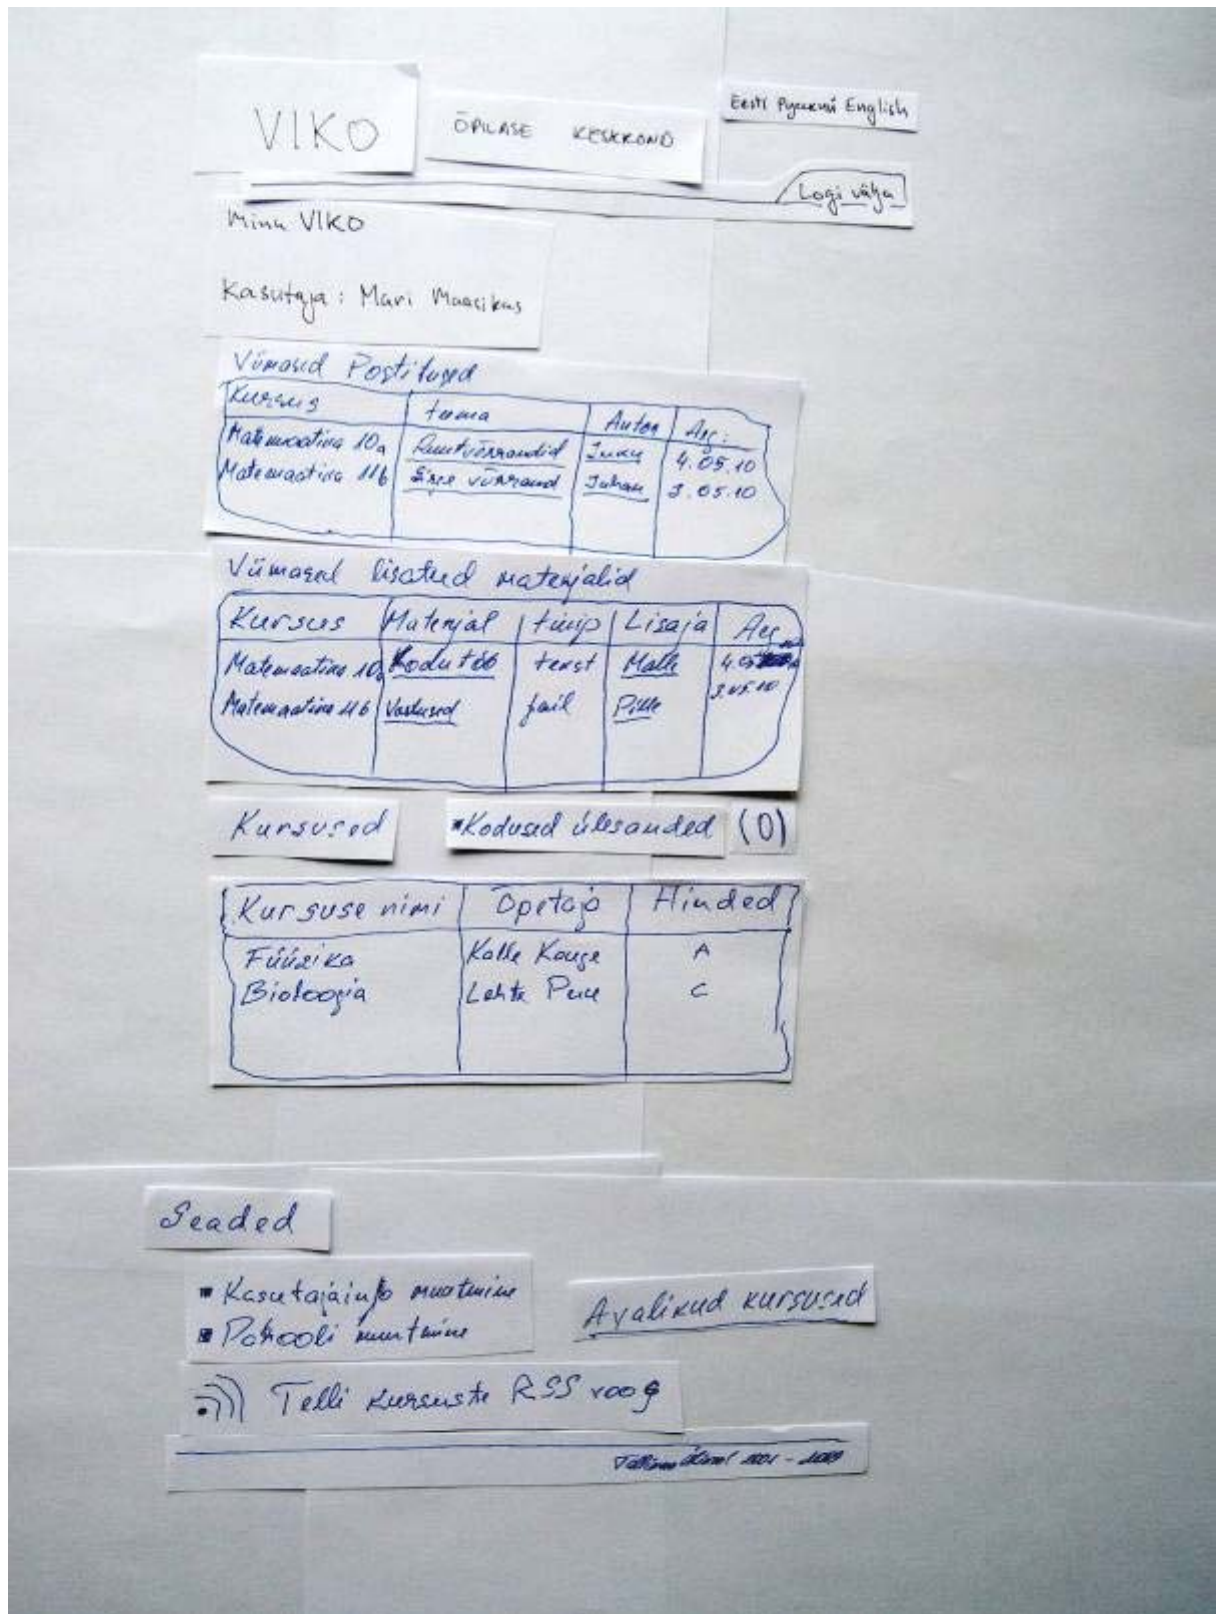 VIKO
ÕPILASE KESKKOND
Eesti Русский English
Logi välja
Minu VIKO
Kasutaja: Mari Maasikas
Viimased Postitused
Kursus teema Autor Aeg:
Matemaatika 10a Ruutvõrrandid Juku 4.05.10
Matemaatika 11b Sirge võrrand Juhan 3.05.10
Viimased lisatud materjalid
Kursus Materjal tüüp Lisaja Aeg
Matemaatika 10a Kodutöö tekst Malle 4.05
Matemaatika 11b Vastused fail Pille 3.05.10
Kursused
Kodused ülesanded (0)
Kursuse nimi Õpetaja Hinded
Füüsika Kalle Kauge A
Bioloogia Lehte A C
Seaded
▪ Kasutajainfo muutmine
▪ Parooli muutmine
Avalikud kursused
Telli kursuste RSS voog
Tallinna